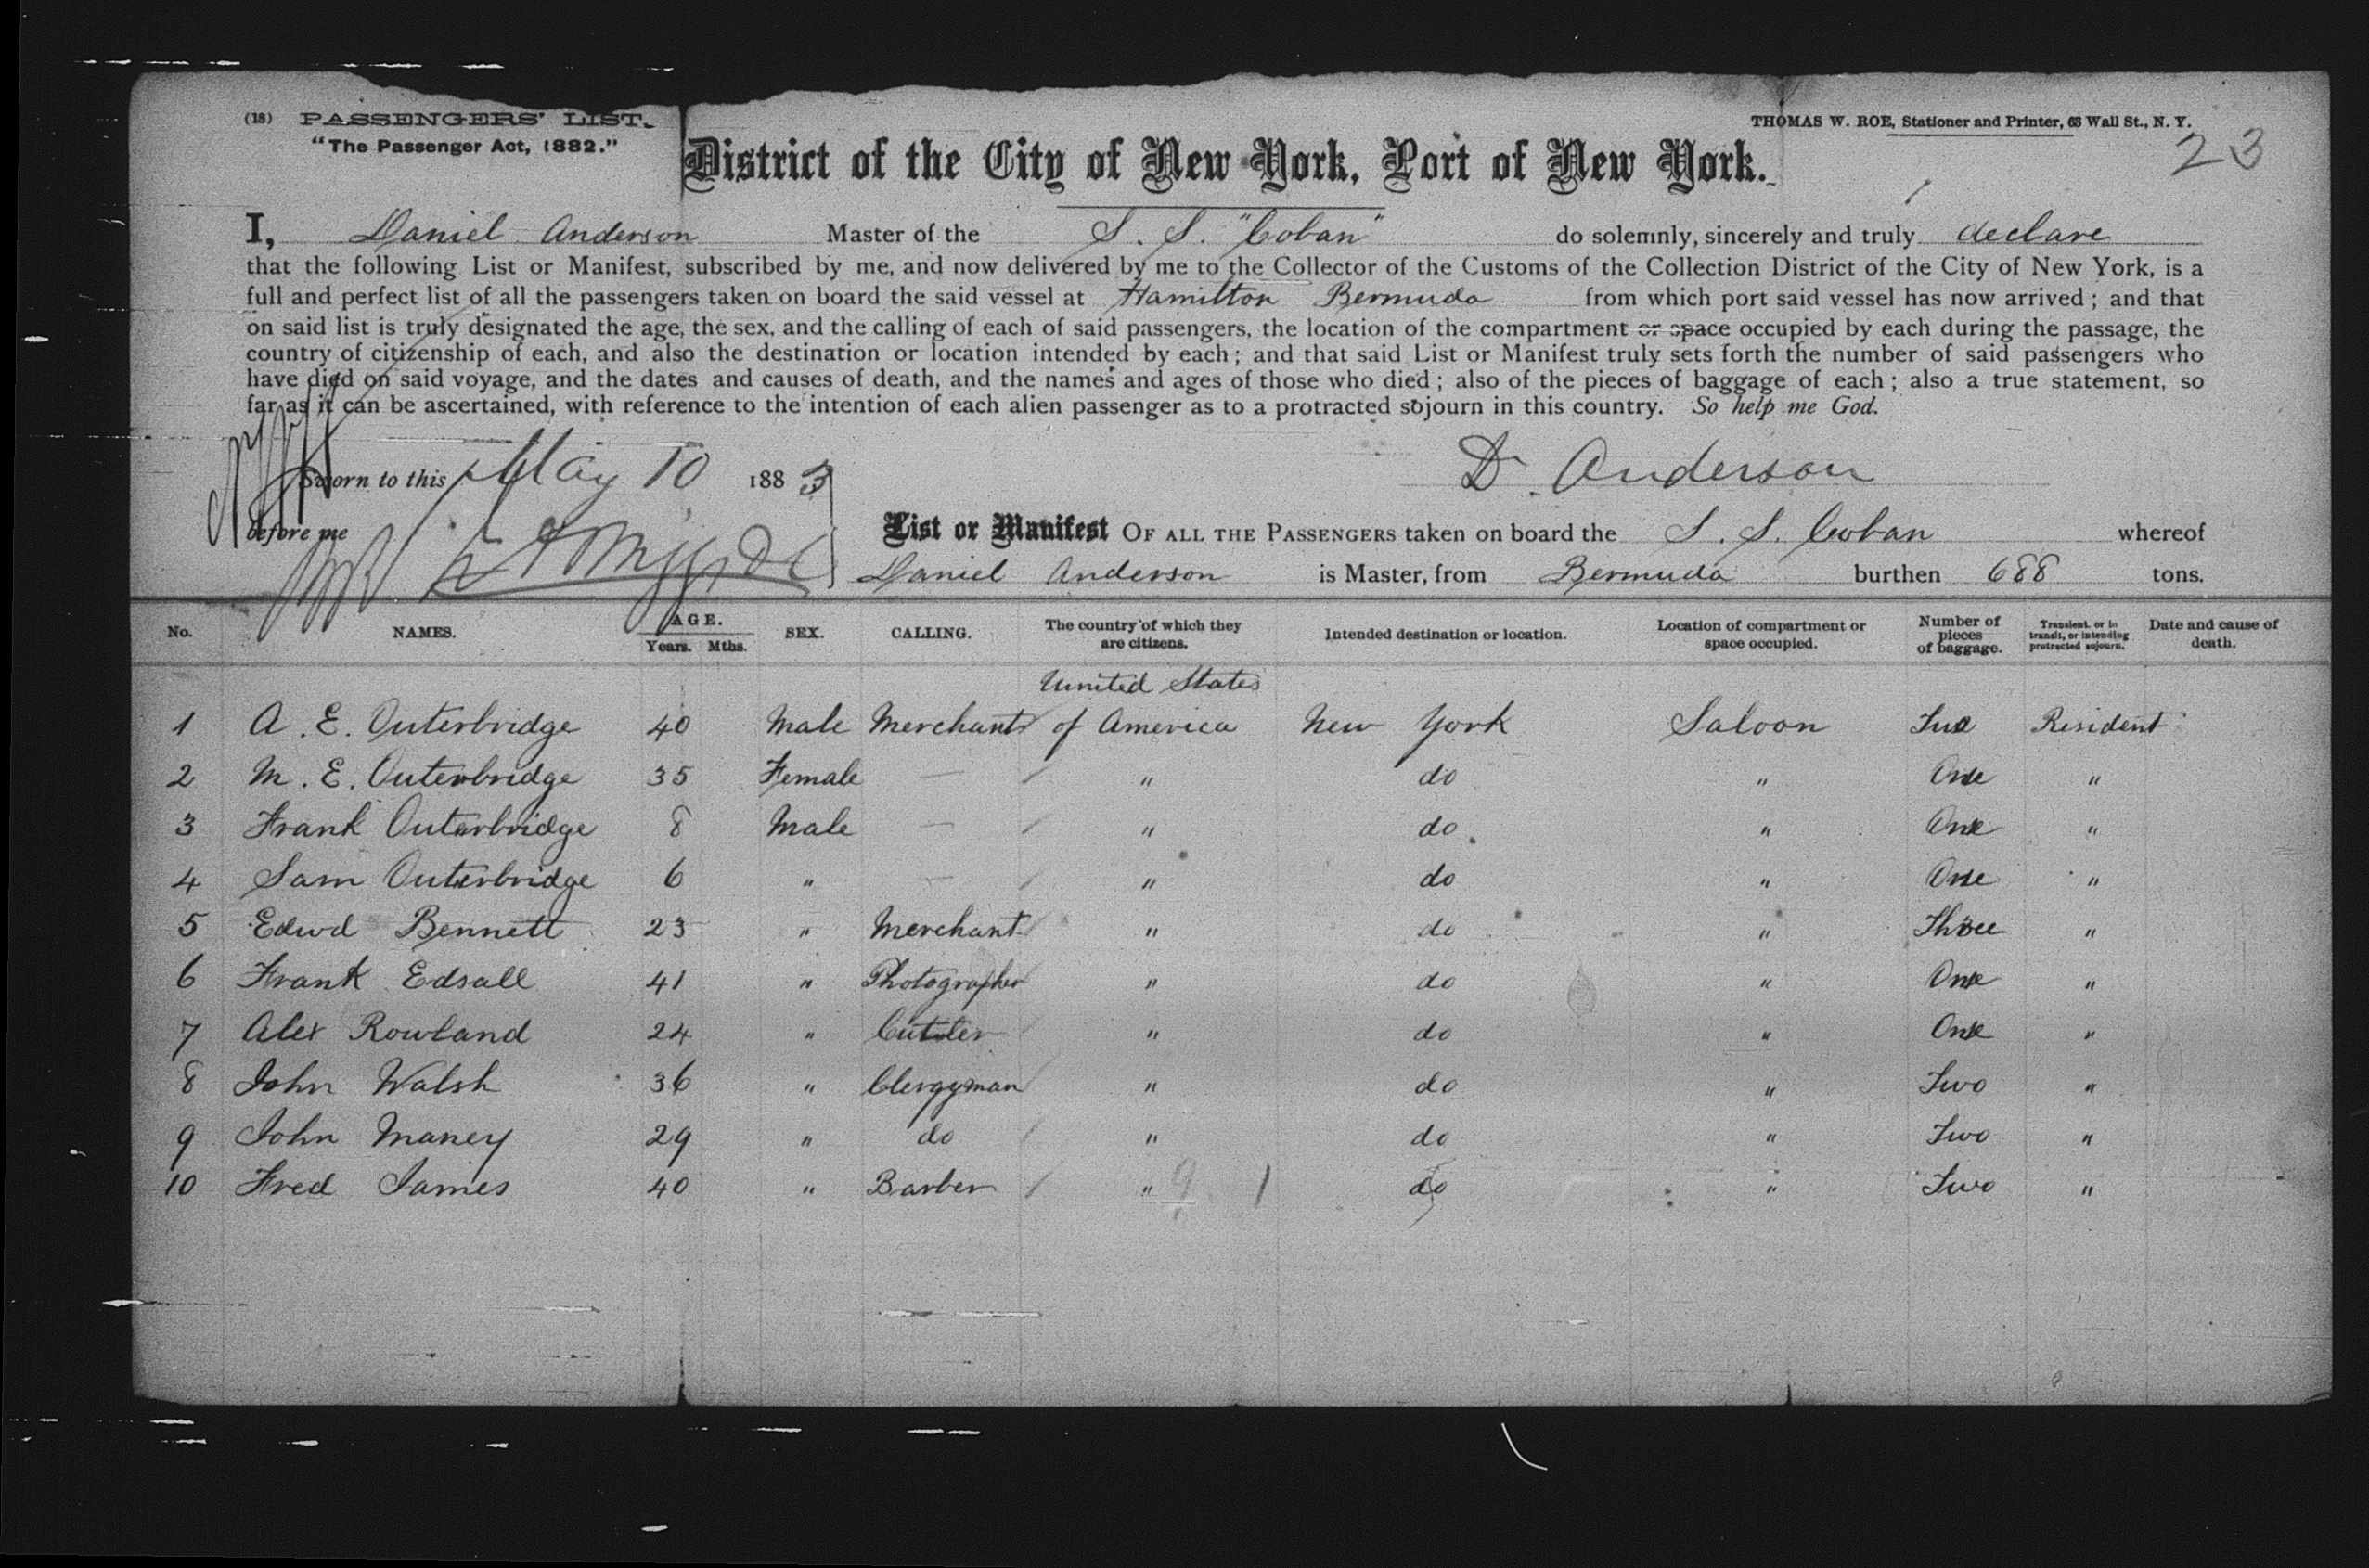 (18) PASSENGERS' LIST.
"The Passenger Act, 1882."
THOMAS W. ROE, Stationer and Printer, 63 Wall St., N. Y.
23
District of the City of New York, Port of New York.
I, Daniel Anderson Master of the S. S. "Coban" do solemnly, sincerely and truly declare
that the following List or Manifest, subscribed by me, and now delivered by me to the Collector of the Customs of the Collection District of the City of New York, is a
full and perfect list of all the passengers taken on board the said vessel at Hamilton Bermuda from which port said vessel has now arrived; and that
on said list is truly designated the age, the sex, and the calling of each of said passengers, the location of the compartment or space occupied by each during the passage, the
country of citizenship of each, and also the destination or location intended by each; and that said List or Manifest truly sets forth the number of said passengers who
have died on said voyage, and the dates and causes of death, and the names and ages of those who died; also of the pieces of baggage of each; also a true statement, so
far as it can be ascertained, with reference to the intention of each alien passenger as to a protracted sojourn in this country. So help me God.
Sworn to this May 10 1883
D. Anderson
before me
List or Manifest OF ALL THE PASSENGERS taken on board the S. S. Coban whereof
Daniel Anderson is Master, from Bermuda burthen 688 tons.
No. NAMES. AGE. Years. Mths. SEX. CALLING. The country of which they are citizens. Intended destination or location. Location of compartment or space occupied. Number of pieces of baggage. Transient, or in transit, or intending protracted sojourn. Date and cause of death.
United States
1 A. E. Outerbridge 40 Male Merchant of America New York Saloon Two Resident
2 M. E. Outerbridge 35 Female — " do " One "
3 Frank Outerbridge 8 Male — " do " One "
4 Sam Outerbridge 6 " — " do " One "
5 Edwd Bennett 23 " Merchant " do " Three "
6 Frank Edsall 41 " Photographer " do " One "
7 Alex Rowland 24 " Cutler " do " One "
8 John Walsh 36 " Clergyman " do " Two "
9 John Maney 29 " do " do " Two "
10 Fred James 40 " Barber " 9 1 do " Two "